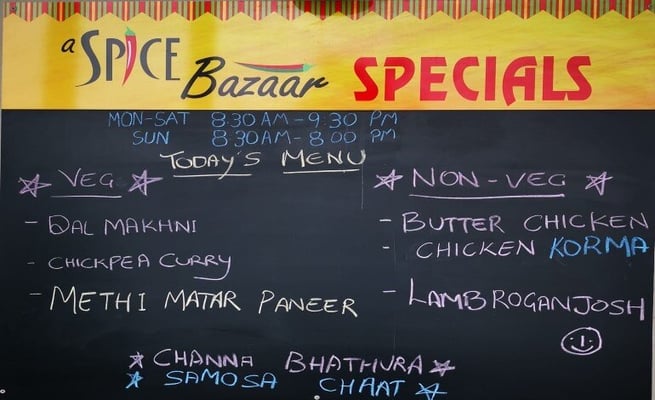 a SPICE Bazaar SPECIALS
MON-SAT 8:30 AM - 9:30 PM
SUN 8:30 AM - 8:00 PM
TODAY'S MENU
VEG
- DAL MAKHNI
- CHICKPEA CURRY
- METHI MATAR PANEER
NON-VEG
- BUTTER CHICKEN
- CHICKEN KORMA
- LAMB ROGANJOSH
CHANNA BHATHURA
SAMOSA CHAAT